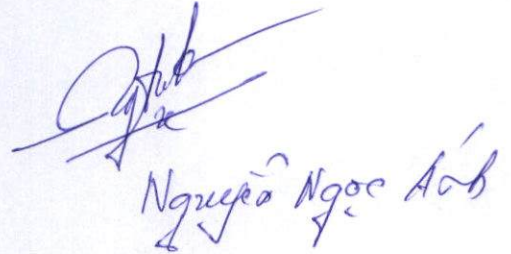 Nguyễn Ngọc Ánh